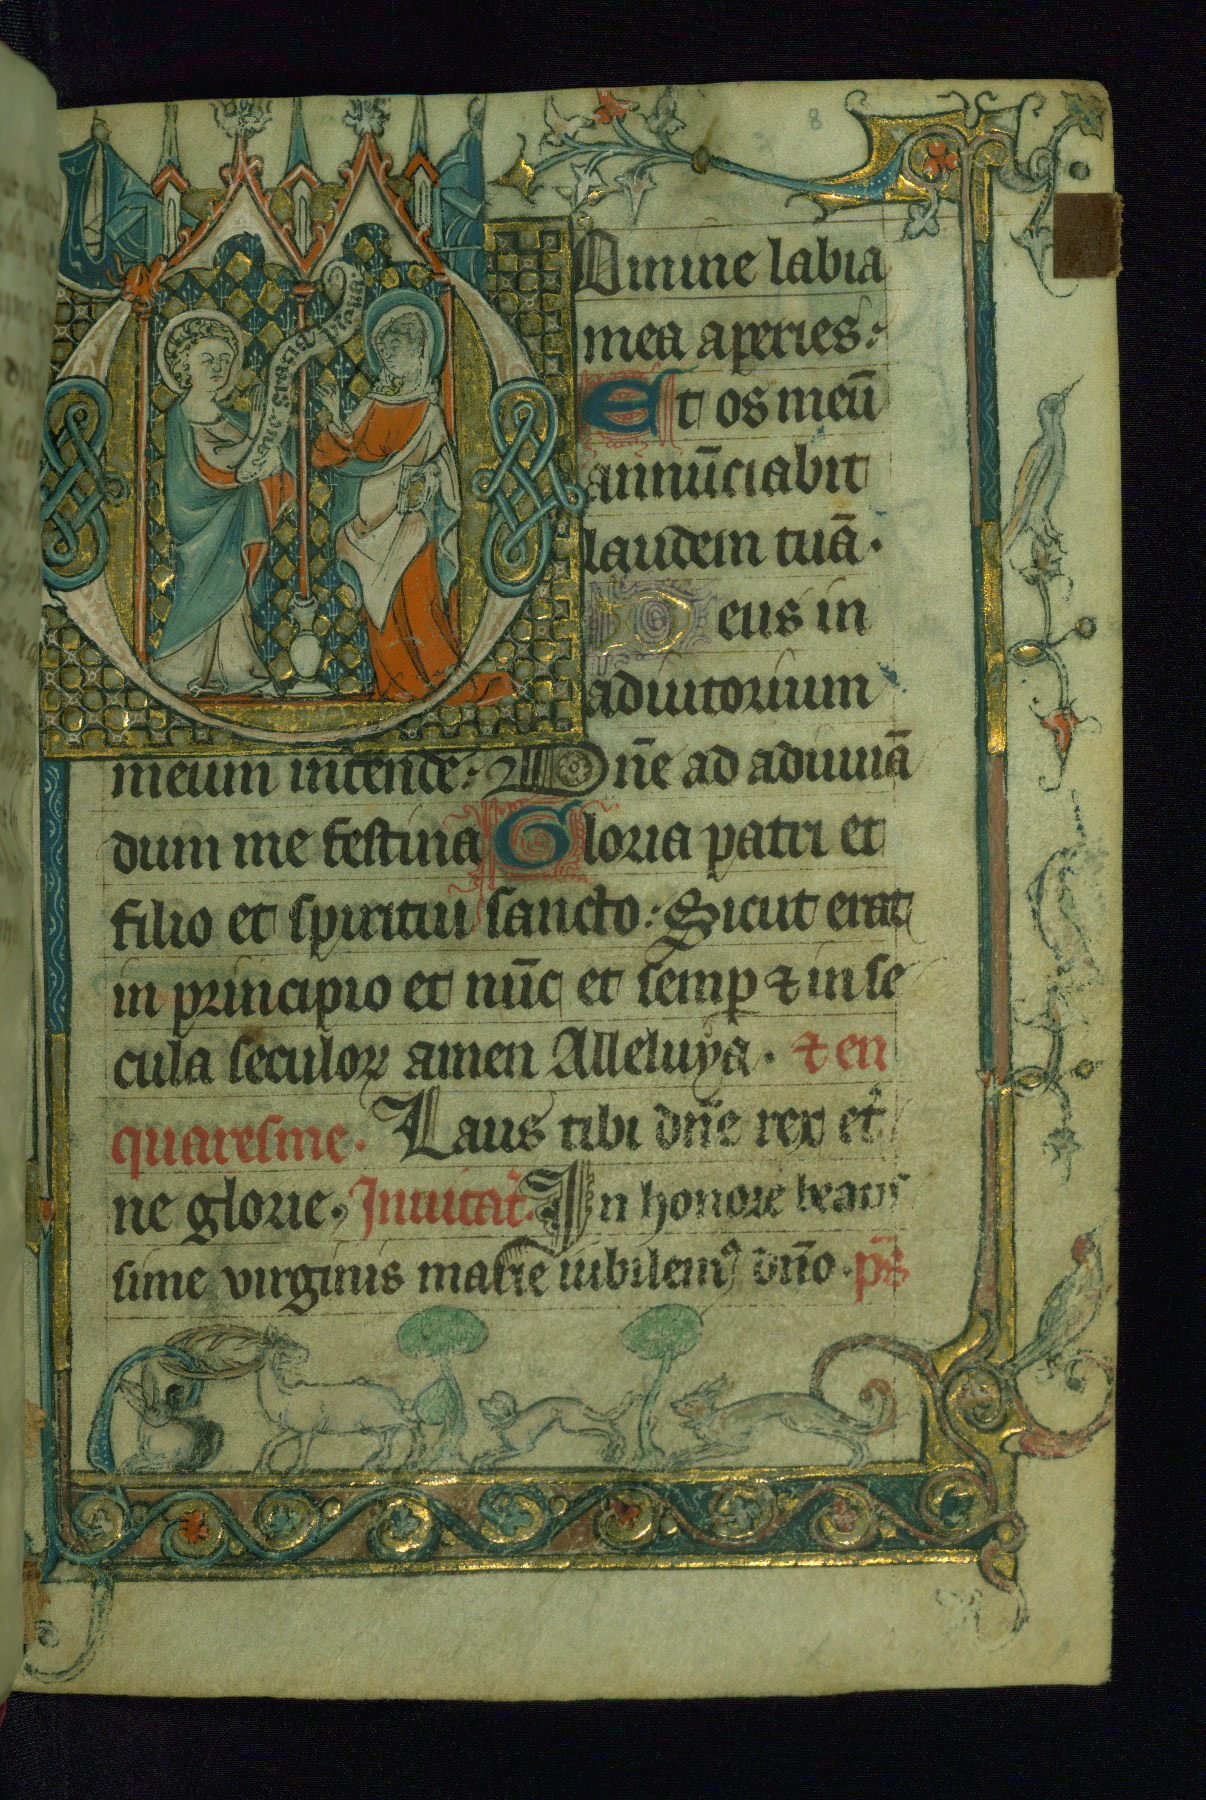 8
aue maria
gracia plena
Omine labia
mea aperies:
Et os meū
annūciabit
laudem tuā.
Deus in
adiutorium
meum intende: Dn̄e ad adiuuā
dum me festina Gloria patri et
filio et spiritui sancto: Sicut erat
in principio et nūc et semꝑ ⁊ in se
cula seculoꝝ amen Alleluya. ⁊ en
quaresme. Laus tibi dn̄e rex et̾
ne glorie. Inuitat̾. In honore beatis
sime virginis marie iubilemꝰ dn̄o. ps̄